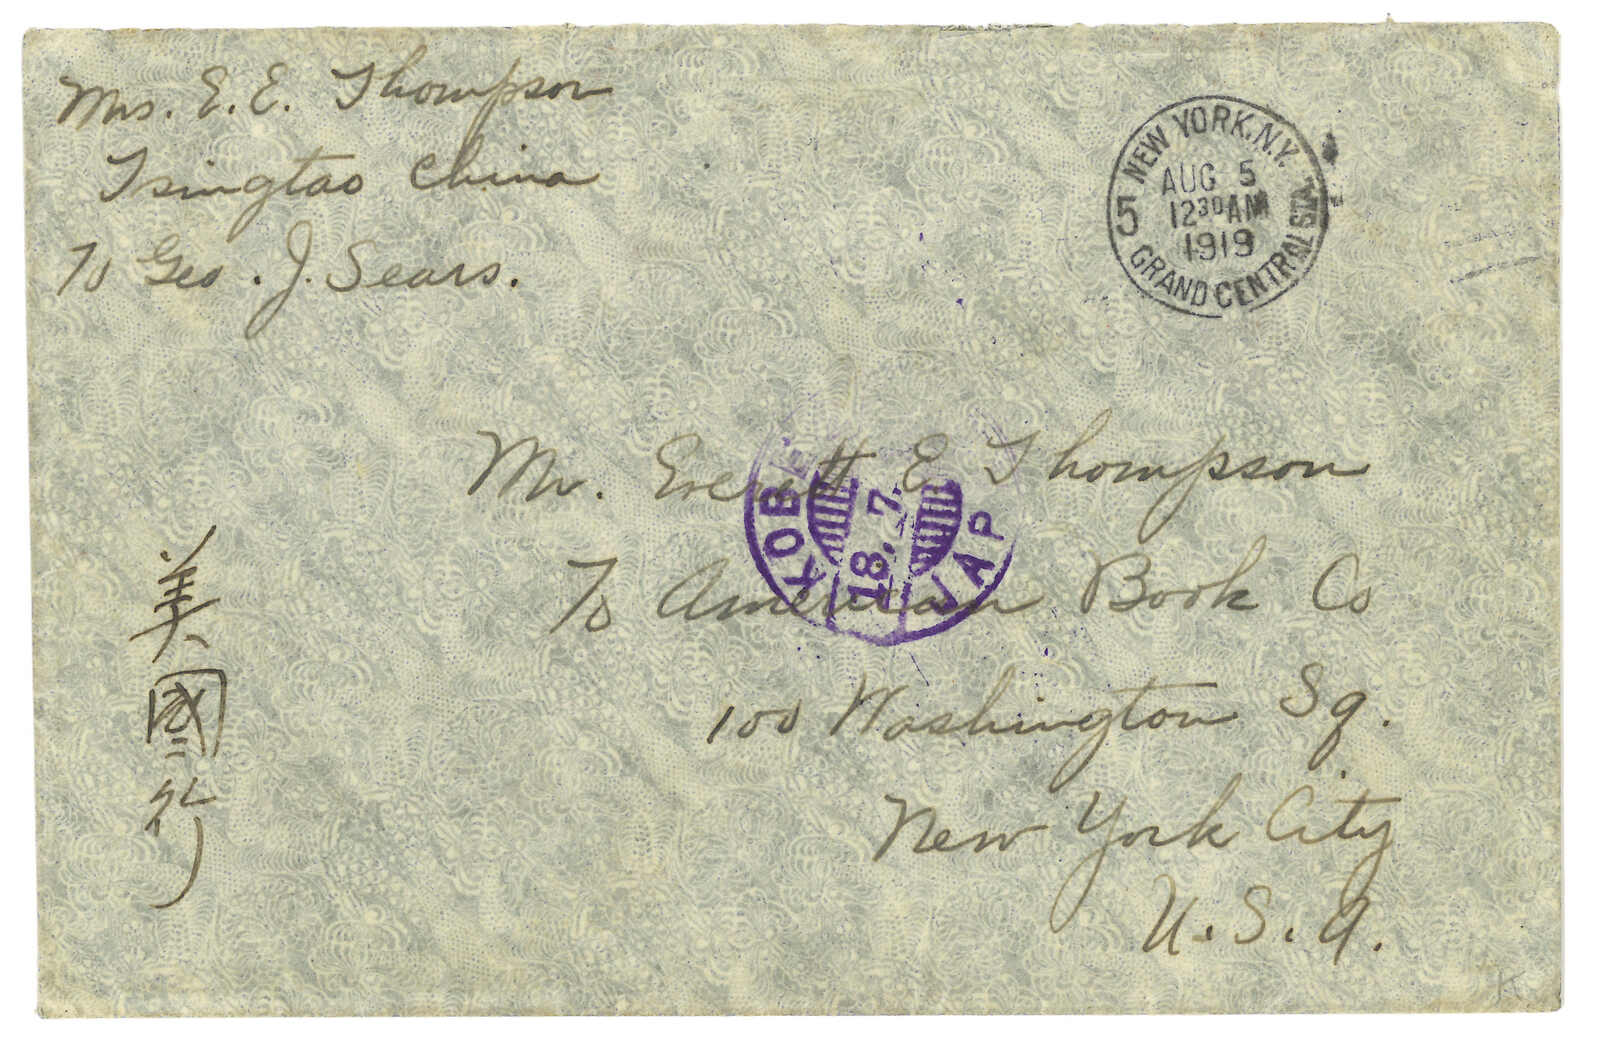 Mrs. E. E. Thompson
Tsingtao China
To Geo. J. Sears.
NEW YORK, N.Y.
AUG 5
12 30 AM
1919
5 GRAND CENTRAL STA.
Mr. Everett E Thompson
KOBE
18.7.
JAP
To American Book Co
100 Washington Sq.
New York City
U.S.A.
美國行
K